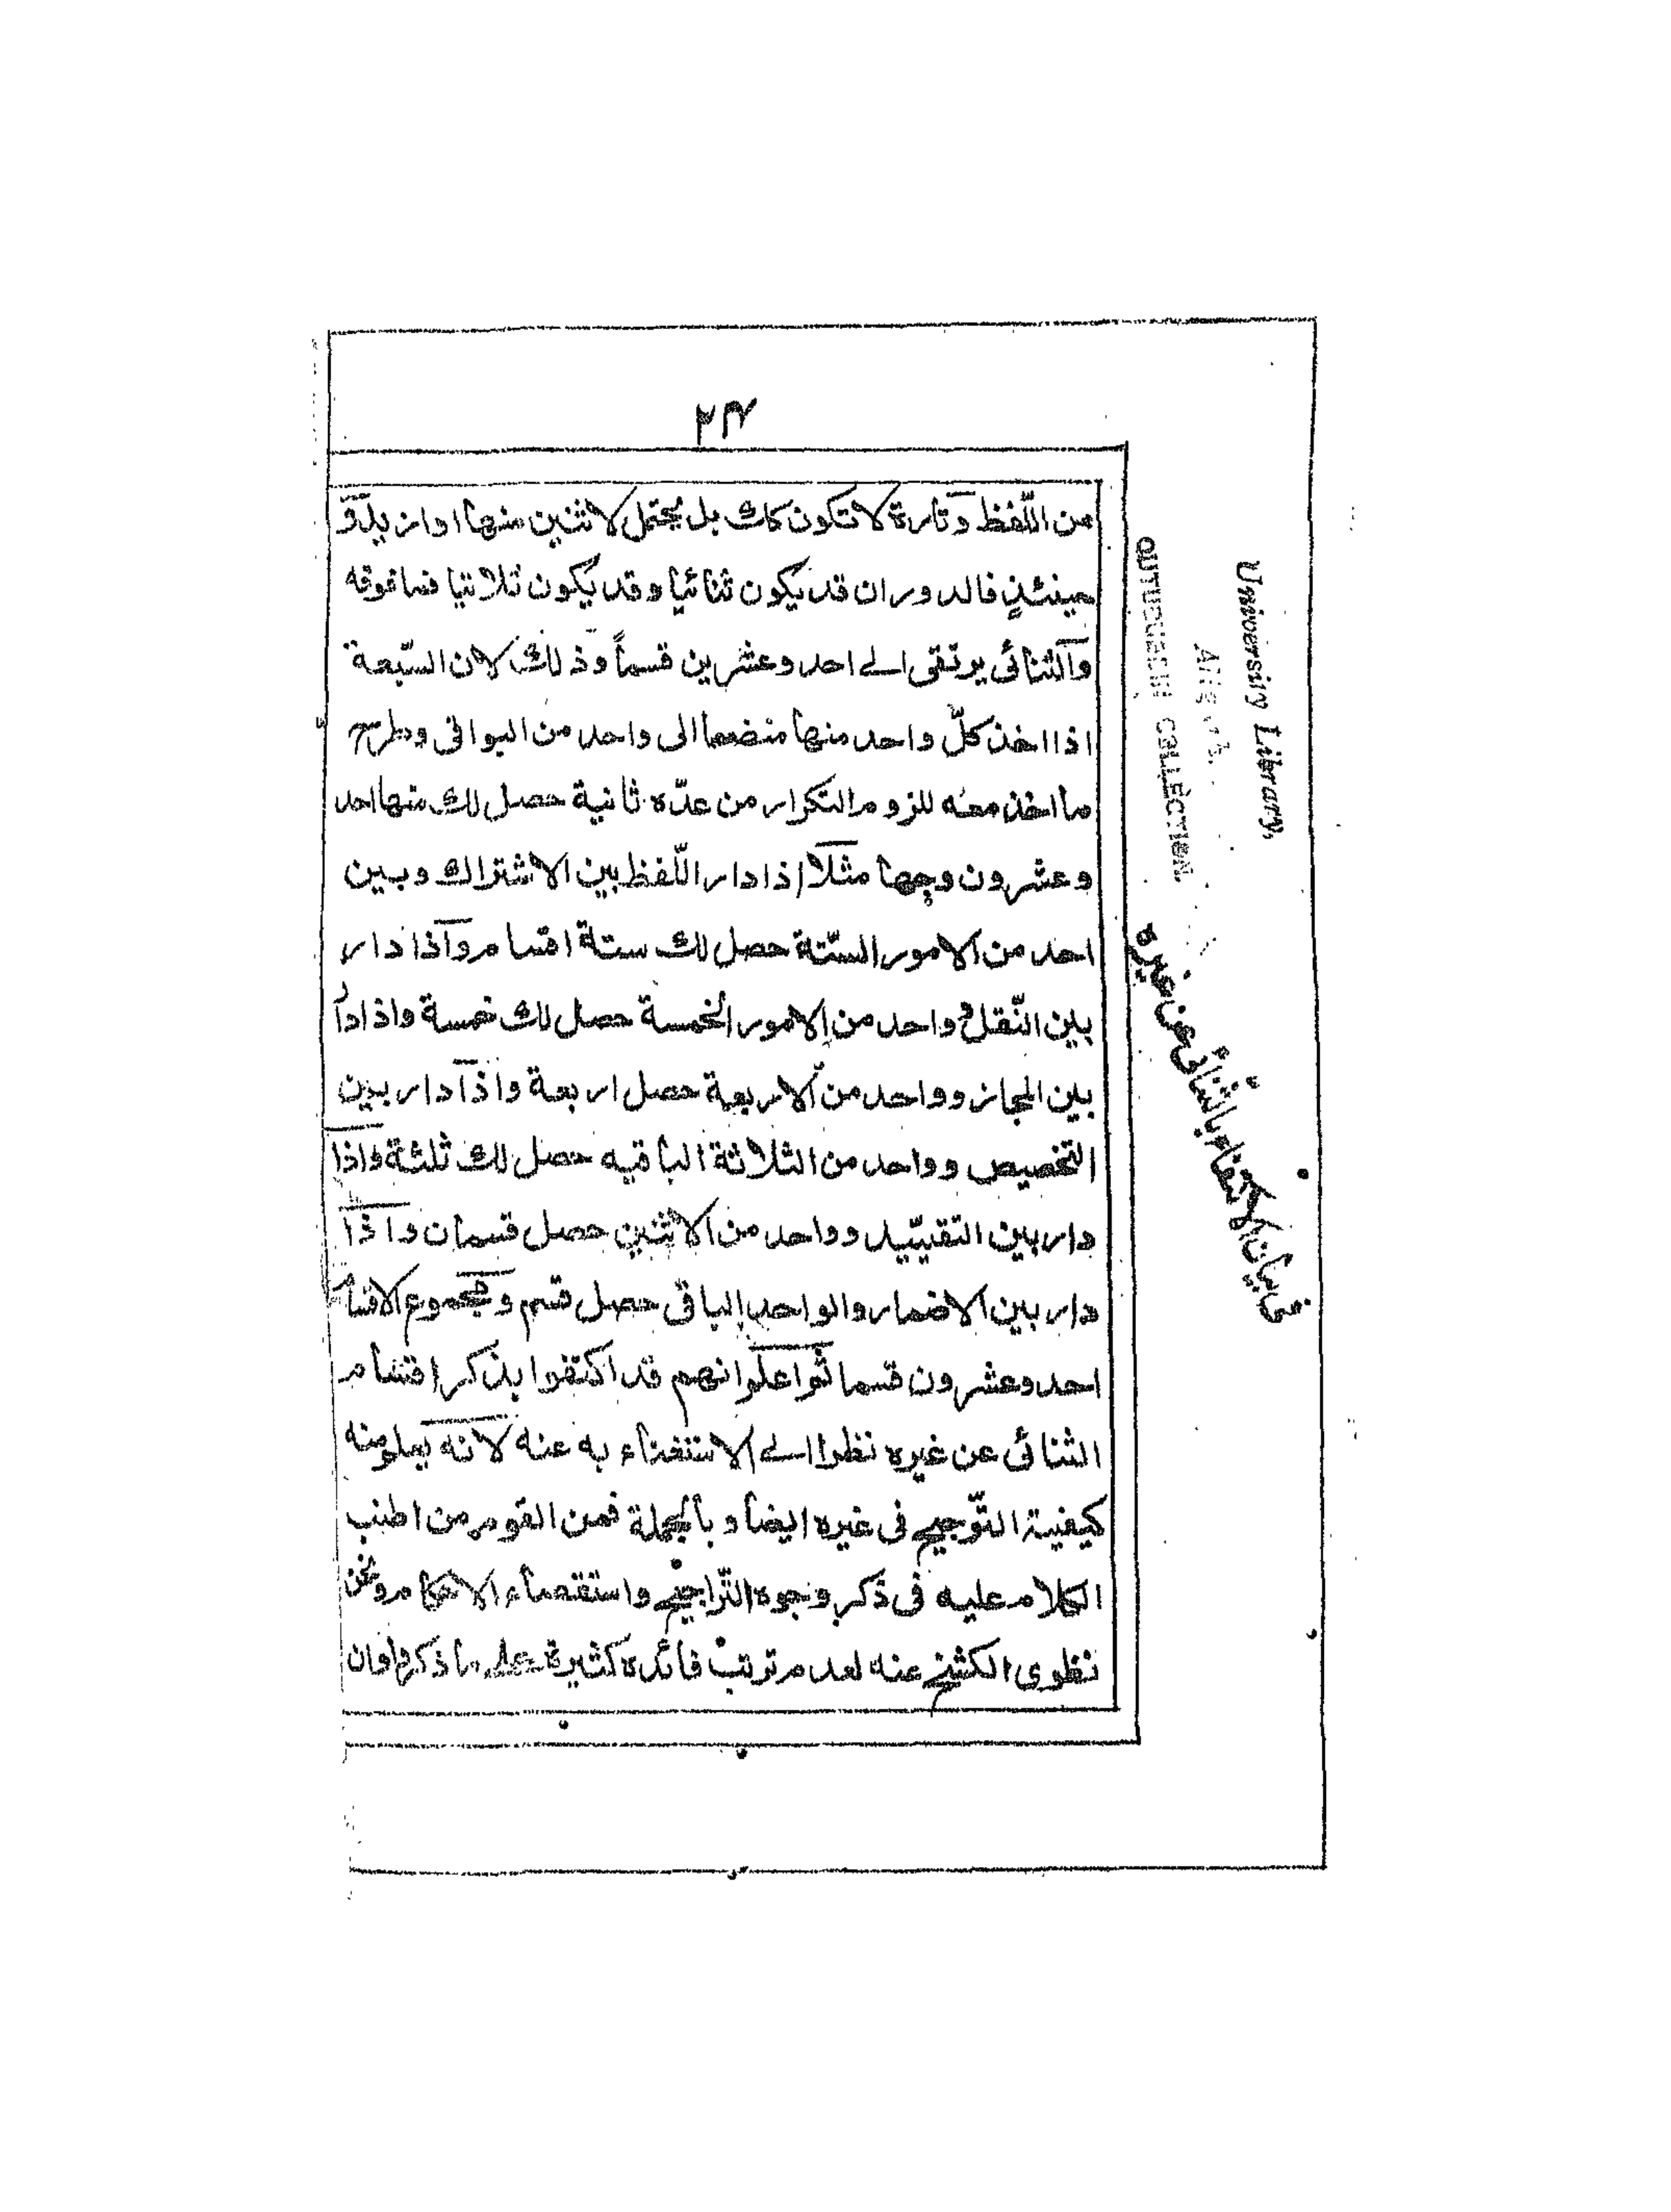 ٢٣
من اللّفظ وتارة لا تكون كك بل يحتمل لاثنين منها او ازيد و
حينئذٍ فالدوران قد يكون ثنائيا وقد يكون ثلاثيا فما فوقه
والثنائى يرتقى الے احد وعشرين قسماً وذلك لان السّبعة
اذا اخذ كلّ واحد منها منضما الى واحد من البواقى وطرح
ما اخذ معه للزوم التكرار من عدّه ثانية حصل لك منها احد
وعشرون وجها مثلا اذا دار اللّفظ بين الاشتراك وبين
احد من الامور السّتة حصل لك ستة اقسام واذا دار
بين النّقل و واحد من الامور الخمسة حصل لك خمسة واذا دار
بين المجاز و واحد من الاربعة حصل اربعة واذا دار بين
التخصيص و واحد من الثلاثة الباقيه حصل لك ثلثة واذا
دار بين التقييد و واحد من الاثنين حصل قسمان واذا
دار بين الاضمار والواحد الباقى حصل قسم ومجموع الاقسام
احد وعشرون قسما ثم اعلم انهم قد اكتفوا بذكر اقسام
الثنائى عن غيره نظرا الے الاستغناء به عنه لانه يعلم منه
كيفية التّرجيح فى غيره ايضا وبالجملة فمن القوم من اطنب
الكلام عليه فى ذكر وجوه التّراجيح واستقصاء الاحكام ونحن
نطوى الكشح عنه لعدم ترتب فائدة كثيرة على ما ذكروا فان
فى بيان الاكتفاء بالثنائى عن غيره
University Library,
COLLECTION